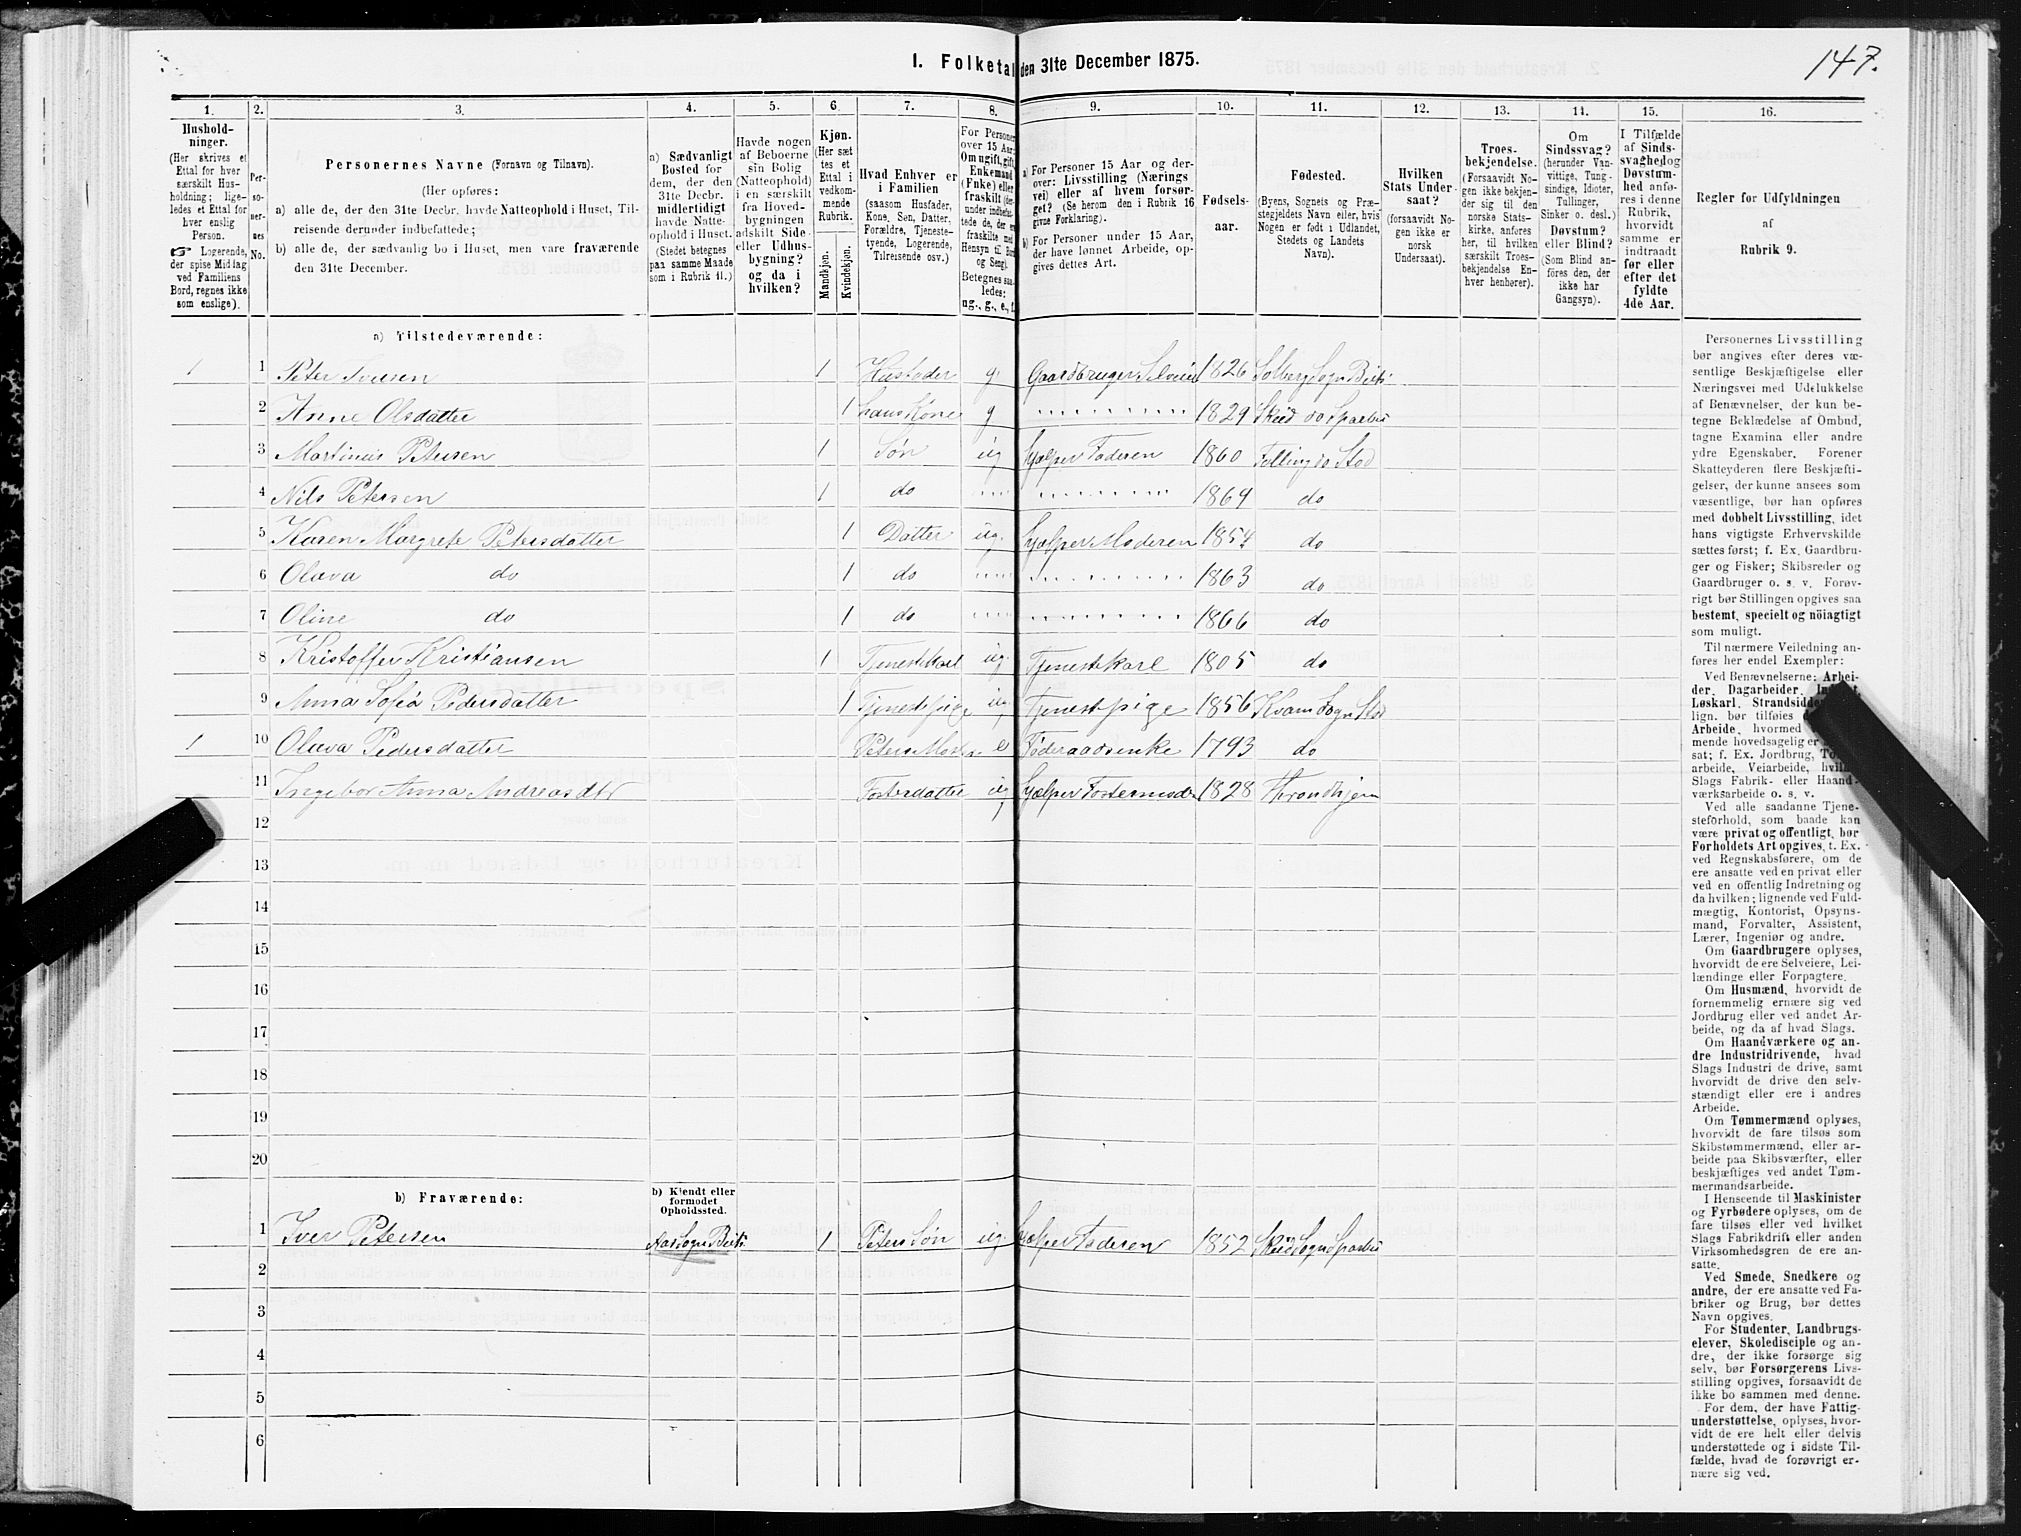 147.
I. Folketal den 31te December 1875.
1. 2. 3. 4. 5. 6. 7. 8. 9. 10. 11. 12. 13. 14. 15. 16.
Hushold-
ninger.
(Her skrives et
Ettal for hver
særskilt Hus-
holdning; lige-
ledes et Ettal for
hver enslig
Person.
☞ Logerende,
der spise Middag
ved Familiens
Bord, regnes ikke
som enslige).
Per-
so-
ner-
nes
No.
Personernes Navne (Fornavn og Tilnavn).
(Her opføres:
a) alle de, der den 31te Decbr. havde Natteophold i Huset, Til-
reisende derunder indbefattede;
b) alle de, der sædvanlig bo i Huset, men vare fraværende
den 31te December.
a) Sædvanligt
Bosted for
dem, der den
31te Decbr.
midlertidigt
havde Natte-
ophold i Huset.
(Stedet betegnes
paa samme Maade
som i Rubrik 11.)
Havde nogen
af Beboerne
sin Bolig
(Natteophold)
i en særskilt
fra Hoved-
bygningen
adskilt Side-
eller Udhus-
bygning?
og da i
hvilken?
Kjøn.
(Her sæt-
tes et
Ettal i
vedkom-
mende
Rubrik.
Mandkjøn.
Kvindekjøn.
Hvad Enhver er
i Familien
(saasom Husfader,
Kone, Søn, Datter,
Forældre, Tjeneste-
tyende, Logerende,
Tilreisende osv.)
For Personer
over 15 Aar:
Om ugift, gift,
Enkemand
(Enke) eller
fraskilt (der-
under indbefat-
tede de, der ere
fraskilte med
Hensyn til Bord
og Seng).
Betegnes saa-
ledes:
ug., g., e., f.
a) For Personer 15 Aar og der-
over: Livsstilling (Nærings-
vei) eller af hvem forsør-
get? (Se herom den i Rubrik 16
givne Forklaring).
b) For Personer under 15 Aar,
der have lønnet Arbeide, op-
gives dettes Art.
Fødsels-
aar.
Fødested.
(Byens, Sognets og Præ-
stegjeldets Navn eller, hvis
Nogen er født i Udlandet,
Stedets og Landets
Navn).
Hvilken
Stats Under-
saat?
(forsaavidt No-
gen ikke er
norsk
Undersaat).
Troes-
bekjendelse.
(Forsaavidt No-
gen ikke bekjen-
der sig til den
norske Stats-
kirke, anføres
her, til hvilken
særskilt Troes-
bekjendelse En-
hver henhører).
Om
Sindssvag?
(herunder Van-
vittige, Tung-
sindige, Idioter,
Tullinger,
Sinker o. desl.)
Døvstum?
eller Blind?
(Som Blind an-
føres den, der
ikke har
Gangsyn).
I Tilfælde
af Sinds-
svaghed og
Døvstum-
hed anfø-
res i denne
Rubrik,
hvorvidt
samme er
indtraadt
før eller
efter det
fyldte
4de Aar.
Regler for Udfyldningen
af
Rubrik 9.
a) Tilstedeværende:
1 1 Peter Iversen 1 Husfader g. Gaardbruger Selveier 1826 Solberg Sogn Beits.
2 Anne Olsdatter 1 hans Kone g 1829 Skeid do Sparbu
3 Martinus Petersen 1 Søn ug hjælper Faderen 1860 Følling do Stod
4 Nils Petersen 1 do 1869 do
5 Karen Margrete Petersdatter 1 Datter ug. hjælper Moderen 1854 do
6 Olava do 1 do 1863 do
7 Oline do 1 do 1866 do
8 Kristoffer Kristiansen 1 Tjenestekarl ug. Tjenestekarl 1805 do
9 Anna Sofia Pedersdatter 1 Tjenestepige ug. Tjenestpige 1856 Kvam Sogn Stod
1 10 Olava Pedersdatter Peters Moder e Føderaadsenke 1793 do
11 Ingebor Anna Andreasdtr Fosterdatter ug hjælper Fostermoder 1828 Throndhjem
12
13
14
15
16
17
18
19
20
b) Fraværende:
b) Kjendt eller
formodet
Opholdssted.
1 Iver Petersen Aas Sogn Beits. 1 Peters Søn ug. hjælper Faderen 1852 Skeid Sogn Sparbu
2
3
4
5
6
Personernes Livsstilling
bør angives efter deres væ-
sentlige Beskjæftigelse eller
Næringsvei med Udelukkelse
af Benævnelser, der kun be-
tegne Beklædelse af Ombud,
tagne Examina eller andre
ydre Egenskaber. Forener
Skatteyderen flere Beskjæfti-
gelser, der kunne ansees som
væsentlige, bør han opføres
med dobbelt Livsstilling, idet
hans vigtigste Erhvervskilde
sættes først; f. Ex. Gaardbru-
ger og Fisker; Skibsreder og
Gaardbruger o. s. v. Forøv-
rigt bør Stillingen opgives saa
bestemt, specielt og nöiagtigt
som muligt.
Til nærmere Veiledning an-
føres her endel Exempler:
Ved Benævnelserne: Arbei-
der, Dagarbeider,
Løskarl, Strandsidder
lign. bør tilføies
Arbeide, hvormed
mende hovedsagelig er
sat; f. Ex. Jordbrug,
arbeide, Veiarbeide,
Slags Fabrik- eller Haand-
værksarbeide o. s. v.
Ved alle saadanne Tjene-
steforhold, som baade kan
være privat og offentligt, bør
Forholdets Art opgives, f. Ex.
ved Regnskabsførere, om de
ere ansatte ved en privat eller
ved en offentlig Indretning og
da hvilken; lignende ved Fuld-
mægtig, Kontorist, Opsyns-
mand, Forvalter, Assistent,
Lærer, Ingeniør og andre.
Om Gaardbrugere oplyses,
hvorvidt de ere Selveiere, Lei-
lændinge eller Forpagtere.
Om Husmænd, hvorvidt de
fornemmelig ernære sig ved
Jordbrug eller ved andet Ar-
beide, og da af hvad Slags.
Om Haandværkere og an-
dre Industridrivende, hvad
Slags Industri de drive, samt
hvorvidt de drive den selv-
stændigt eller ere i andres
Arbeide.
Om Tømmermænd oplyses,
hvorvidt de fare tilsøs som
Skibstømmermænd, eller ar-
beide paa Skibsværfter, eller
beskjæftiges ved andet Tøm-
mermandsarbeide.
I Henseende til Maskinister
og Fyrbødere oplyses, om de
fare tilsøs eller ved hvilket
Slags Fabrikdrift eller anden
Virksomhedsgren de ere an-
satte.
Ved Smede, Snedkere og
andre, der ere ansatte ved Fa-
briker og Brug, bør dettes
Navn opgives.
For Studenter, Landbrugs-
elever, Skoledisciple og an-
dre, der ikke forsørge sig
selv, bør Forsørgerens Livs-
stilling opgives, forsaavidt de
ikke bo sammen med denne.
For dem, der have Fattig-
understøttelse, oplyses, hvor-
vidt de ere helt eller delvis
understøttede og i sidste Til-
fælde, hvad de forøvrigt er-
nære sig ved.